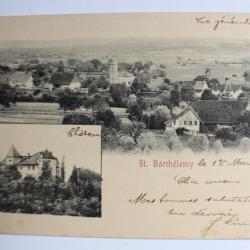 Vue générale
Château
St. Barthélemy le 1er Mai
Cher cousin
Mes bonnes salutations